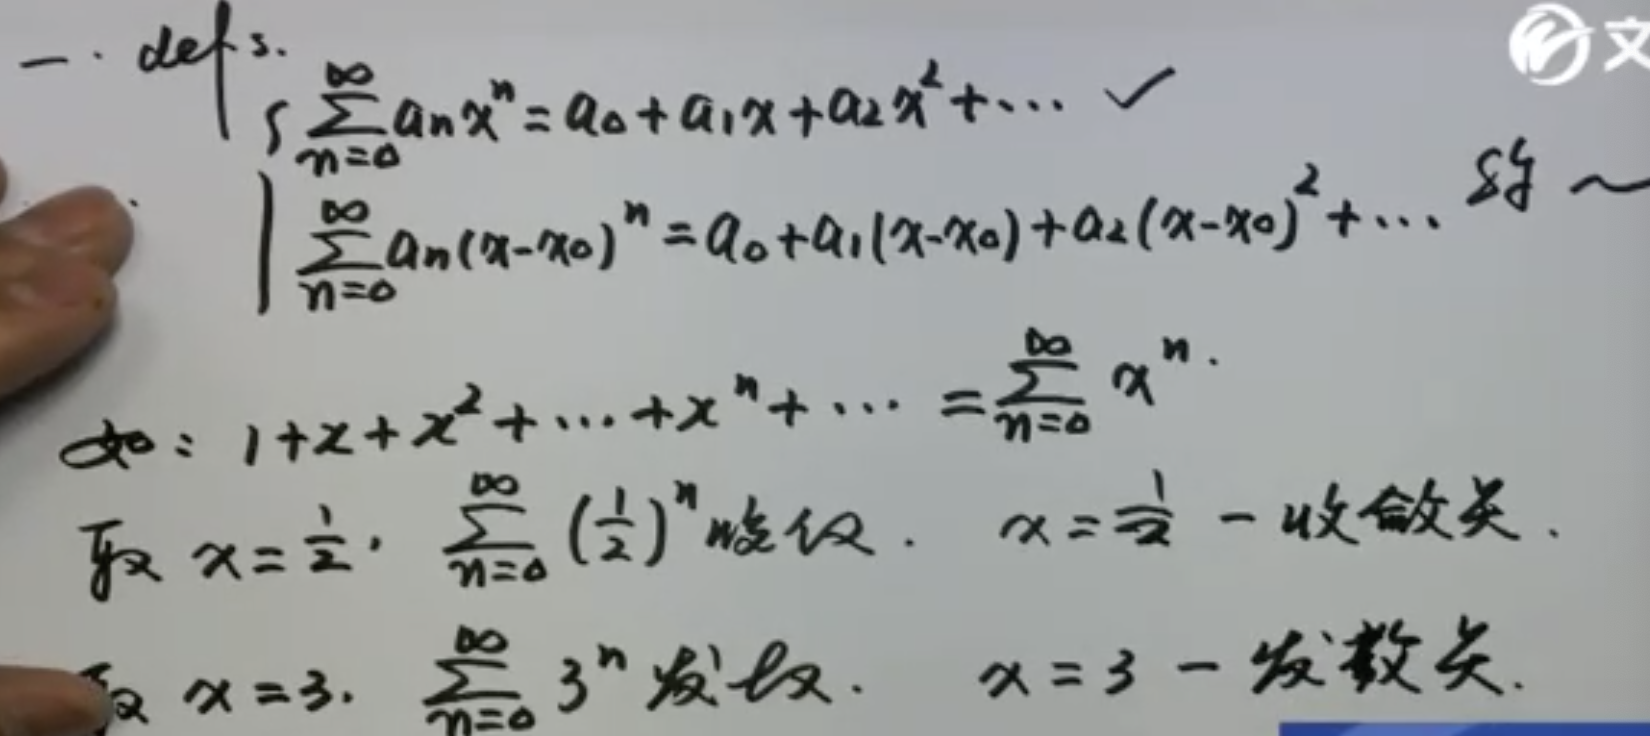 一. defs.
∑_{n=0}^{∞} aₙxⁿ = a₀ + a₁x + a₂x² + ··· ✓
∑_{n=0}^{∞} aₙ(x-x₀)ⁿ = a₀ + a₁(x-x₀) + a₂(x-x₀)² + ··· ~
如: 1+x+x²+···+xⁿ+··· = ∑_{n=0}^{∞} xⁿ.
取 x=1/2. ∑_{n=0}^{∞} (1/2)ⁿ 收敛. x=1/2 - 收敛点.
取 x=3. ∑_{n=0}^{∞} 3ⁿ 发散. x=3 - 发散点.
文